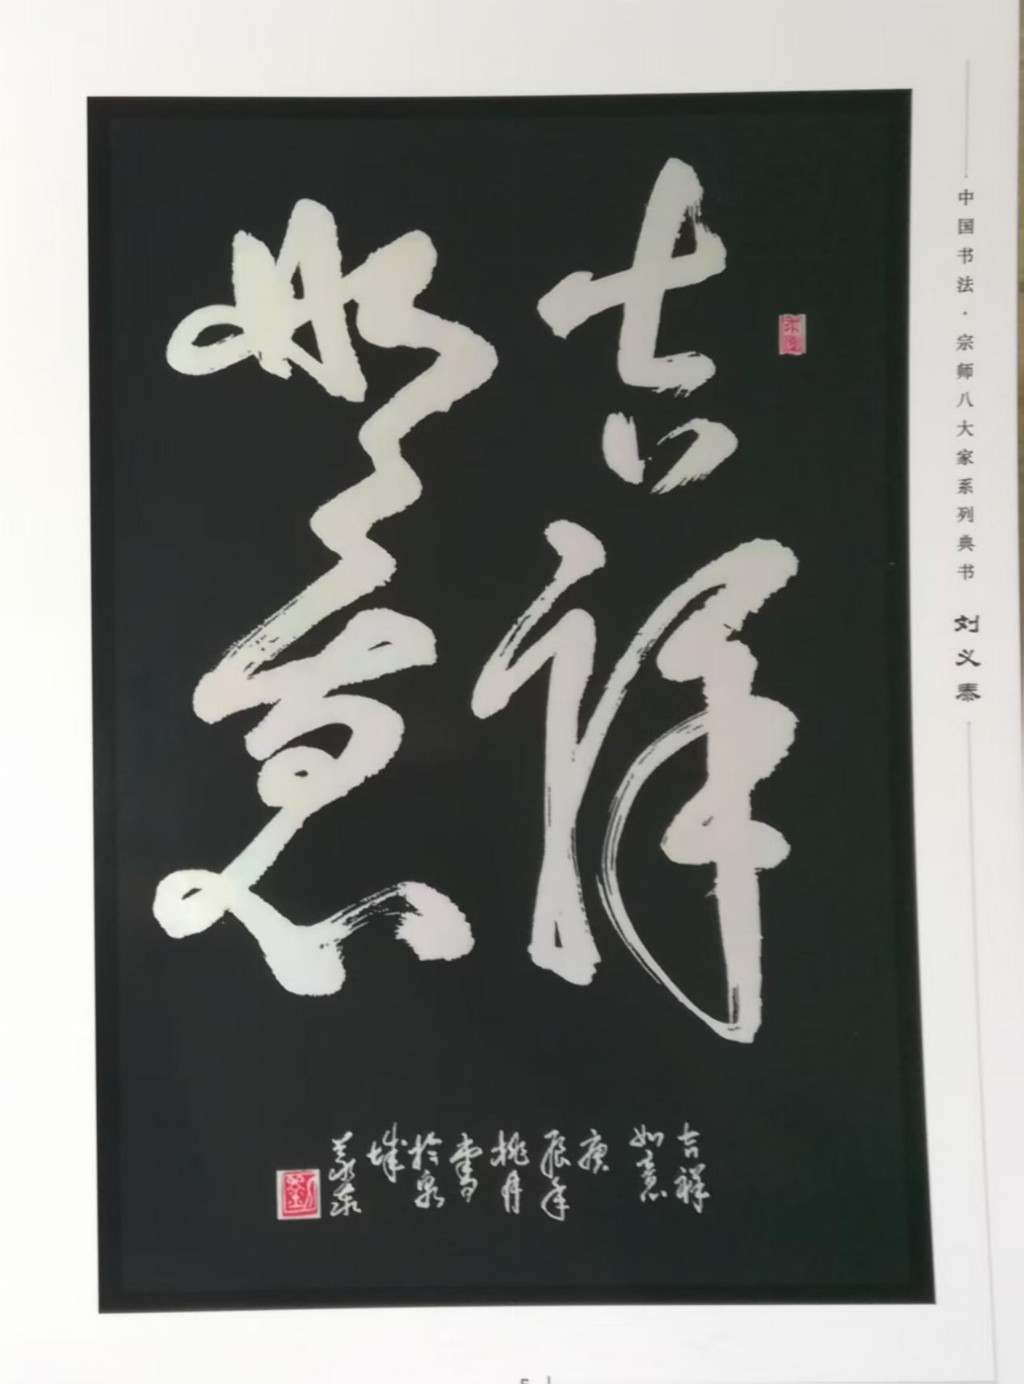 吉祥
如意
吉祥
如意
庚
辰年
桃月
书
於泉
城
义泰
刘
中国书法·宗师八大家系列典书 刘义泰